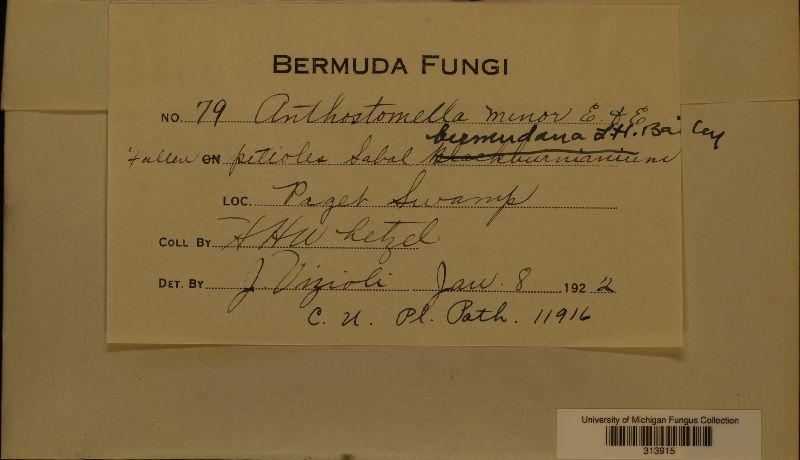 BERMUDA FUNGI
NO. 79 Anthostomella minor E. & E.
bermudana L.H. Bailey
Fallen ON petioles Sabal blackburnianium
LOC. Paget Swamp
COLL BY H H Whetzel
DET. BY J. Vizioli Jan. 8 1922
C. U. Pl. Path. 11916
University of Michigan Fungus Collection
313915